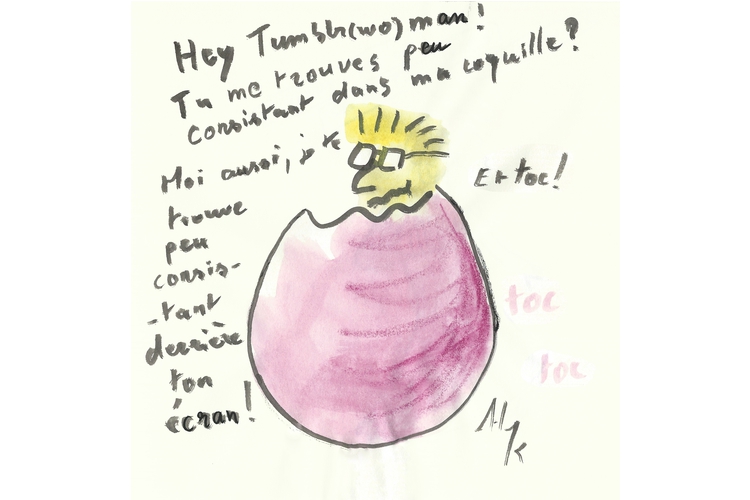 Hey Tumblr(wo)man!
Tu me trouves peu
consistant dans ma coquille?
Moi aussi, je te
trouve
peu
consis-
-tant
derrière
ton
écran!
Et toc!
toc
toc